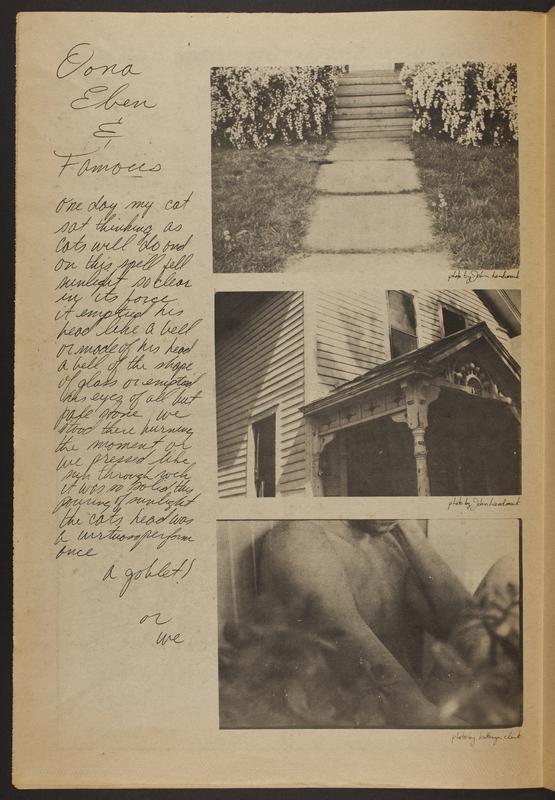 Oona
Eben
&
Famous
one day my cat
sat thinking as
cats will do and
on this spell fell
sunlight so clear
in its force
it emptied his
head like a bell
or made of his head
a bell of the shape
of glass or emptied
his eyes of all but
pale stone we
stood there burning
the moment or
we pressed like
sun through
it was so solid this
pouring of sunlight
the cats head was
a virtuoso perform
ance
a goblet!
or
we
photo by John
photo by John
photo by Kathryn Clark